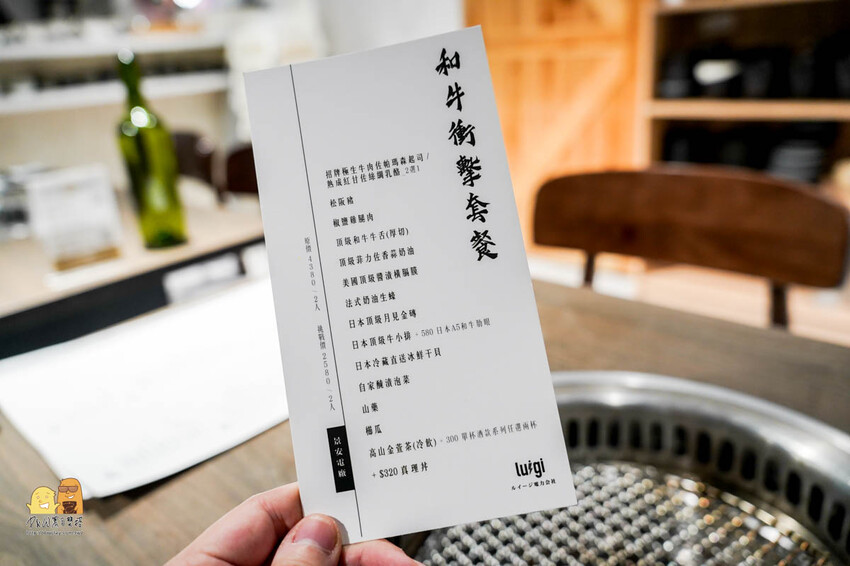 和牛衝擊套餐
招牌極生牛肉佐帕瑪森起司 /
熟成紅甘佐絲綢乳酪 2選1
松阪豬
椒鹽雞腿肉
頂級和牛牛舌(厚切)
頂級菲力佐香蒜奶油
美國頂級醬漬橫膈膜
法式奶油生蠔
日本頂級月見金磚
日本頂級牛小排 + 580 日本A5和牛肋眼
日本冷藏直送冰鮮干貝
自家醃漬泡菜
山藥
櫛瓜
高山金萱茶(冷飲) + 300 單杯酒款系列任選兩杯
+ $320 真理丼
4380 \ 2人
2580 \ 2人
景安電廠
luigi
ルイージ電力会社